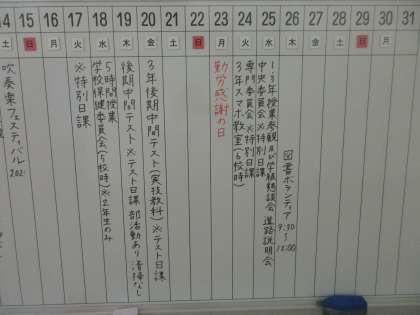 14 15 16 17 18 19 20 21 22 23 24 25 26 27 28 29 30 31
土 日 月 火 水 木 金 土 日 月 火 水 木 金 土 日 月
吹奏楽フェスティバル
※特別日課
5時間授業
学校保健委員会(5校時)※2年生のみ
後期中間テスト※テスト日課 部活動あり 清掃なし
3年後期中間テスト(実技教科)※テスト日課
勤労感謝の日
専門委員会※特別日課
3年スマホ教室(6校時)
1・3年授業参観及び学級懇談会 進路説明会
中央委員会※特別日課
図書ボランティア
9:30〜
12:00